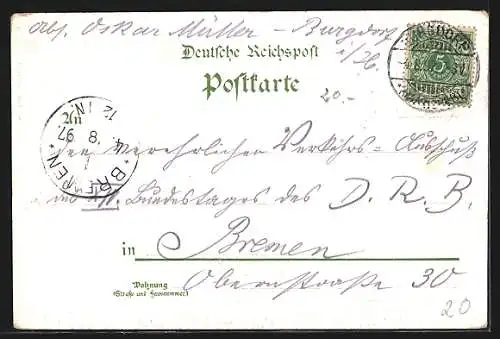 Abs. Oskar Müller – Burgdorf
i/H.
Deutsche Reichspost
Postkarte
20.-
5
An
den verehrlichen Verkehrs-Ausschuß
des Bundestages des D. R. B.
in Bremen
Wohnung
(Straße und Hausnummer)
Obernstraße 30
20
BREMEN
4. 8 97
12-1 N.
BURGDORF